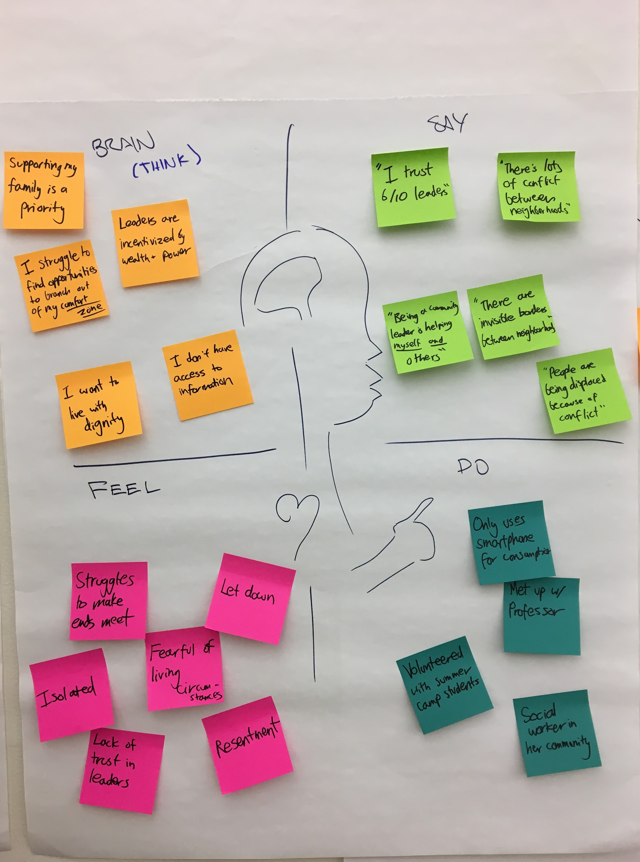 BRAIN
(THINK)
Supporting my
family is a
priority
Leaders are
incentivized by
wealth + power
I struggle to
find opportunities
to branch out
of my comfort
zone
I don't have
access to
information
I want to
live with
dignity
SAY
"I trust
6/10 leaders"
"There's lots
of conflict
between
neighborhoods"
"Being a community
leader is helping
myself and
others"
"There are
invisible borders
between neighborhoods"
"People are
being displaced
because of
conflict"
FEEL
Struggles
to make
ends meet
Let down
Fearful of
living
circum-
stances
Isolated
Lack of
trust in
leaders
Resentment
DO
Only uses
smartphone
for consumption
Met up w/
Professor
Volunteered
with summer
camp students
Social
worker in
her community